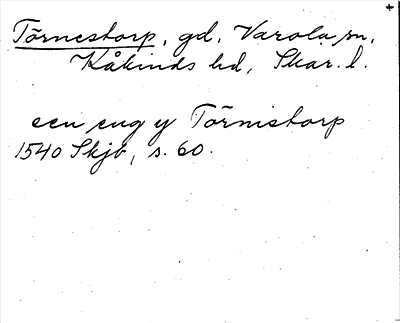 Törnestorp, gd, Varola sn,
Kåkinds hd, Skar. l.
een eng y Törnistorp
1540 Skjb, s. 60.